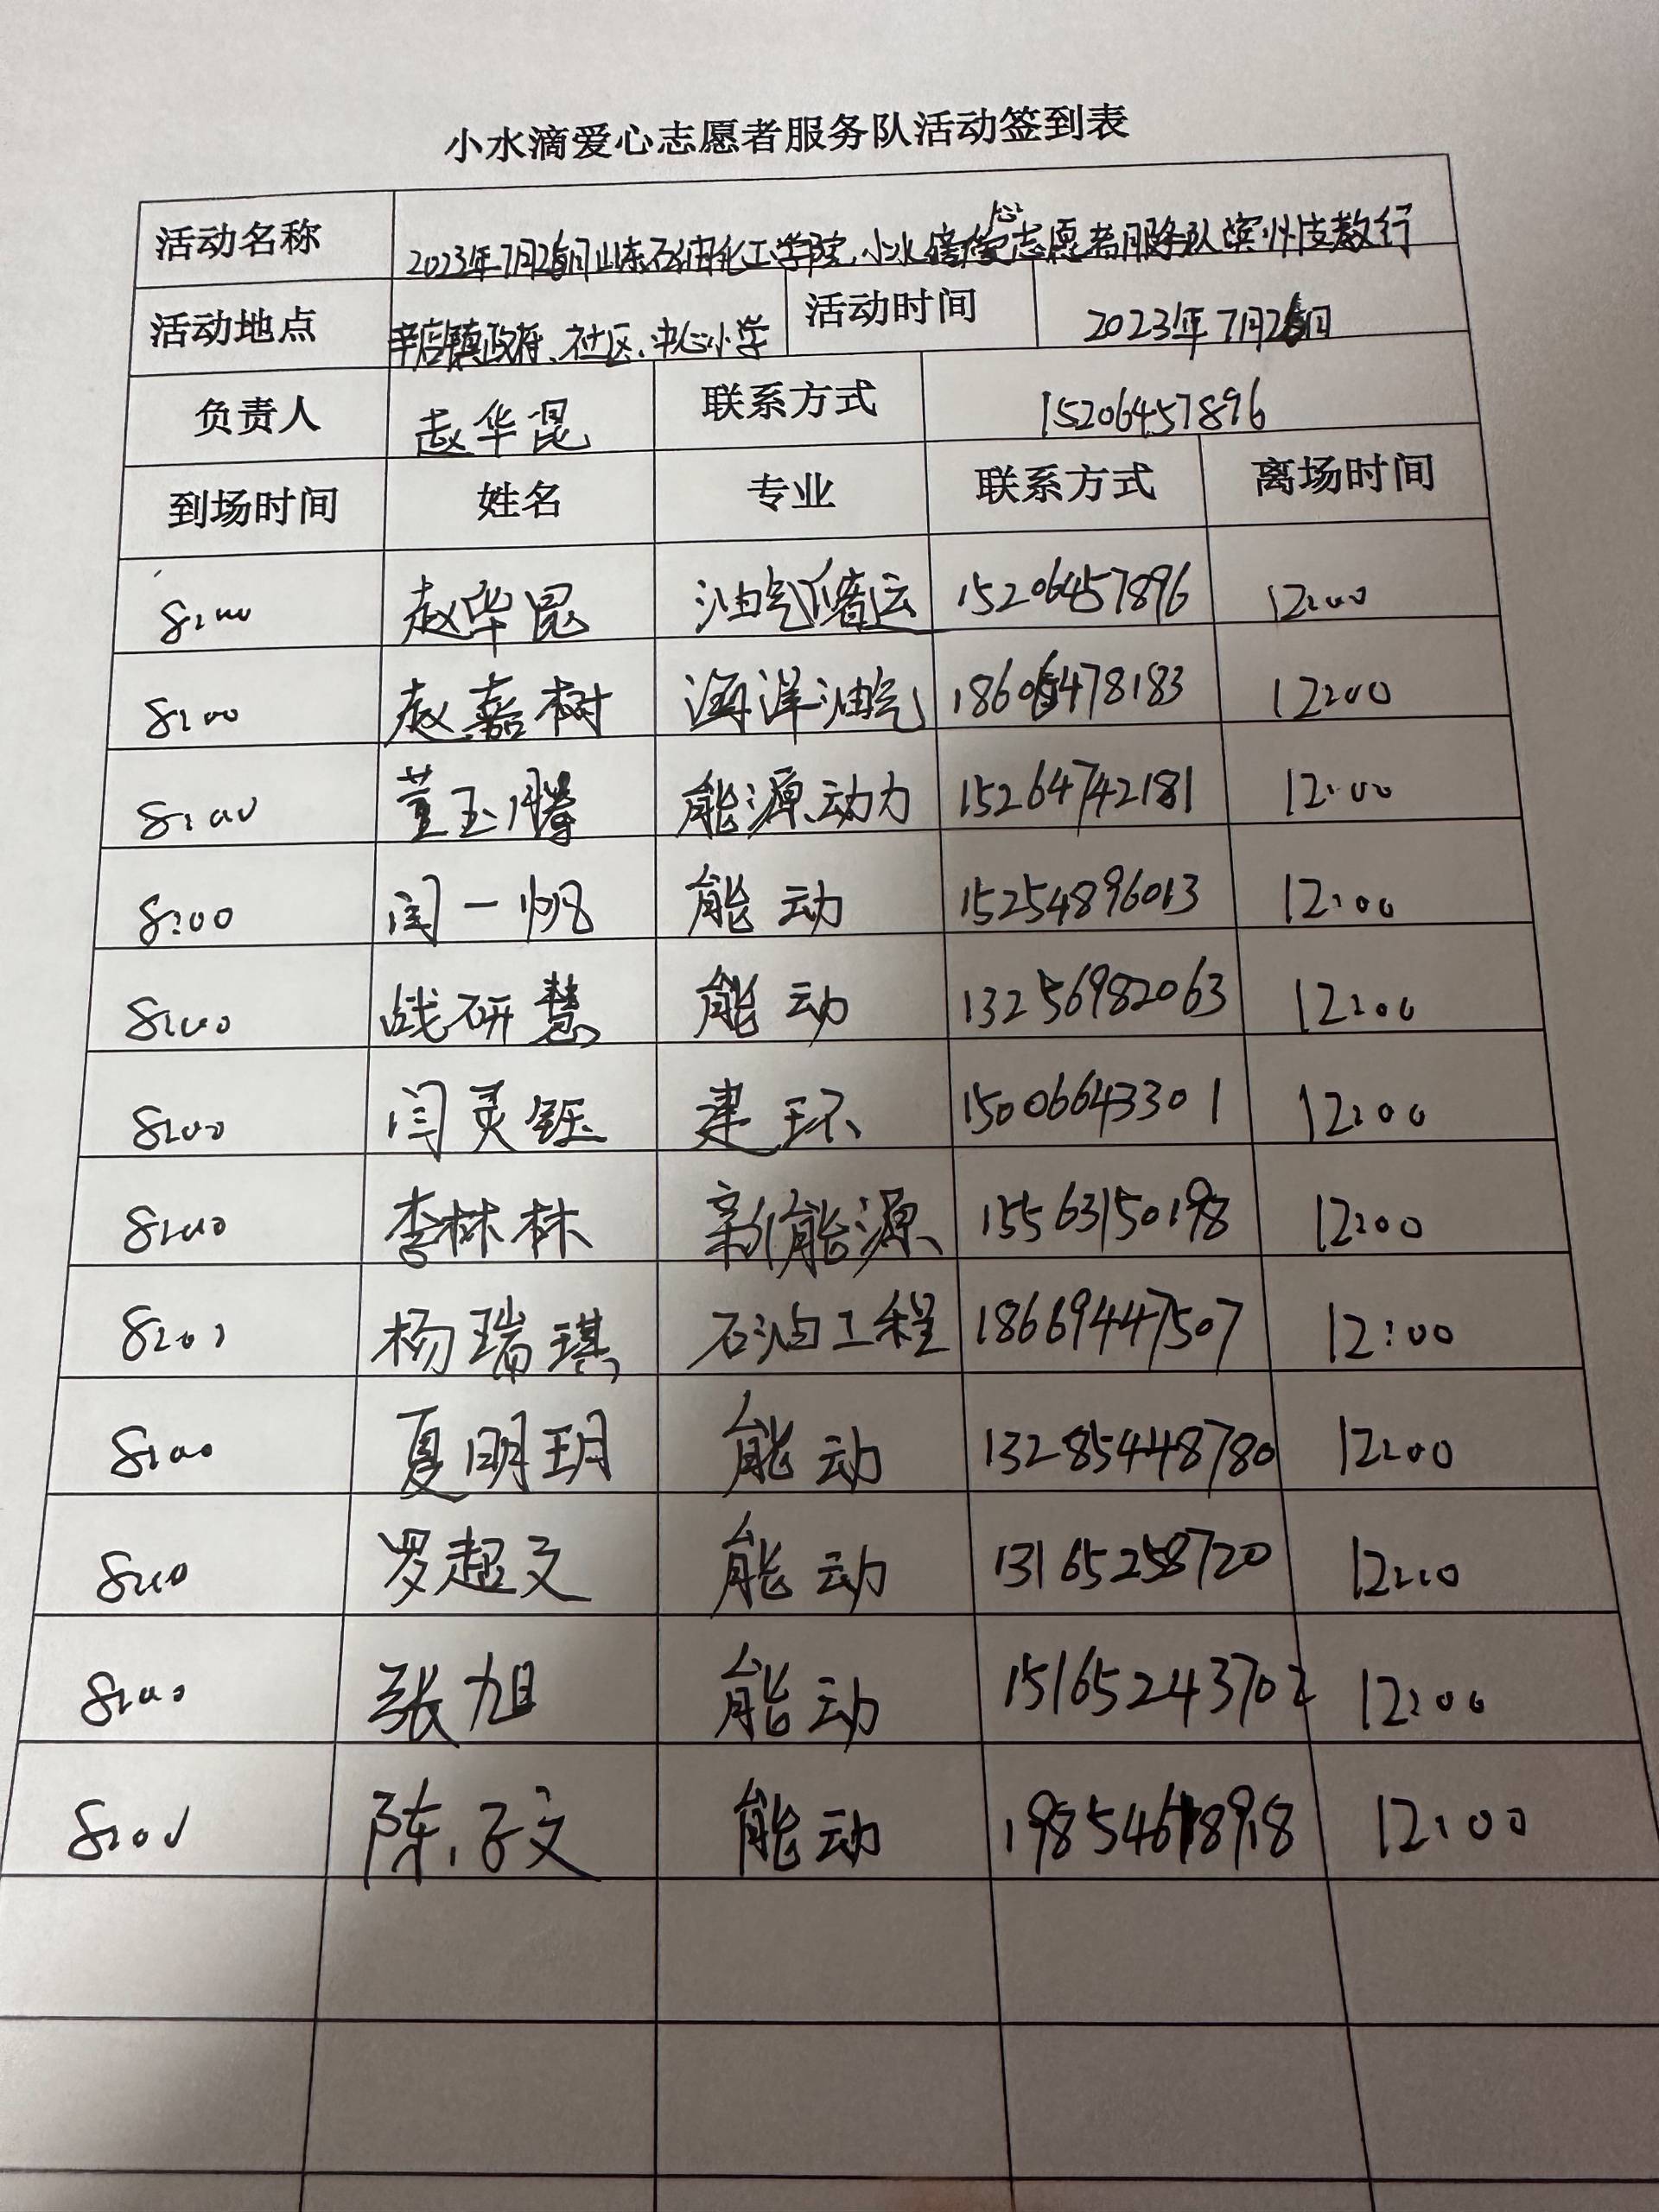 小水滴爱心志愿者服务队活动签到表
活动名称 2023年7月26日山东石油化工学院小水滴爱心志愿者服务队滨州支教行
活动地点 辛店镇政府、社区、中心小学 活动时间 2023年7月26日
负责人 赵华昆 联系方式 15206457896
到场时间 姓名 专业 联系方式 离场时间
8:00 赵华昆 油气储运 15206457896 12:00
8:00 赵嘉树 海洋油气 18606478183 12:00
8:00 董玉腾 能源动力 15264742181 12:00
8:00 闫一帆 能动 15254896013 12:00
8:00 战研慧 能动 13256982063 12:00
8:00 闫灵钰 建环 15006643301 12:00
8:00 李林林 新能源 15563150198 12:00
8:00 杨瑞琪 石油工程 18669447507 12:00
8:00 夏明玥 能动 13285448780 12:00
8:00 罗超文 能动 13165258720 12:00
8:00 张旭 能动 15165243702 12:00
8:00 陈子文 能动 12:00